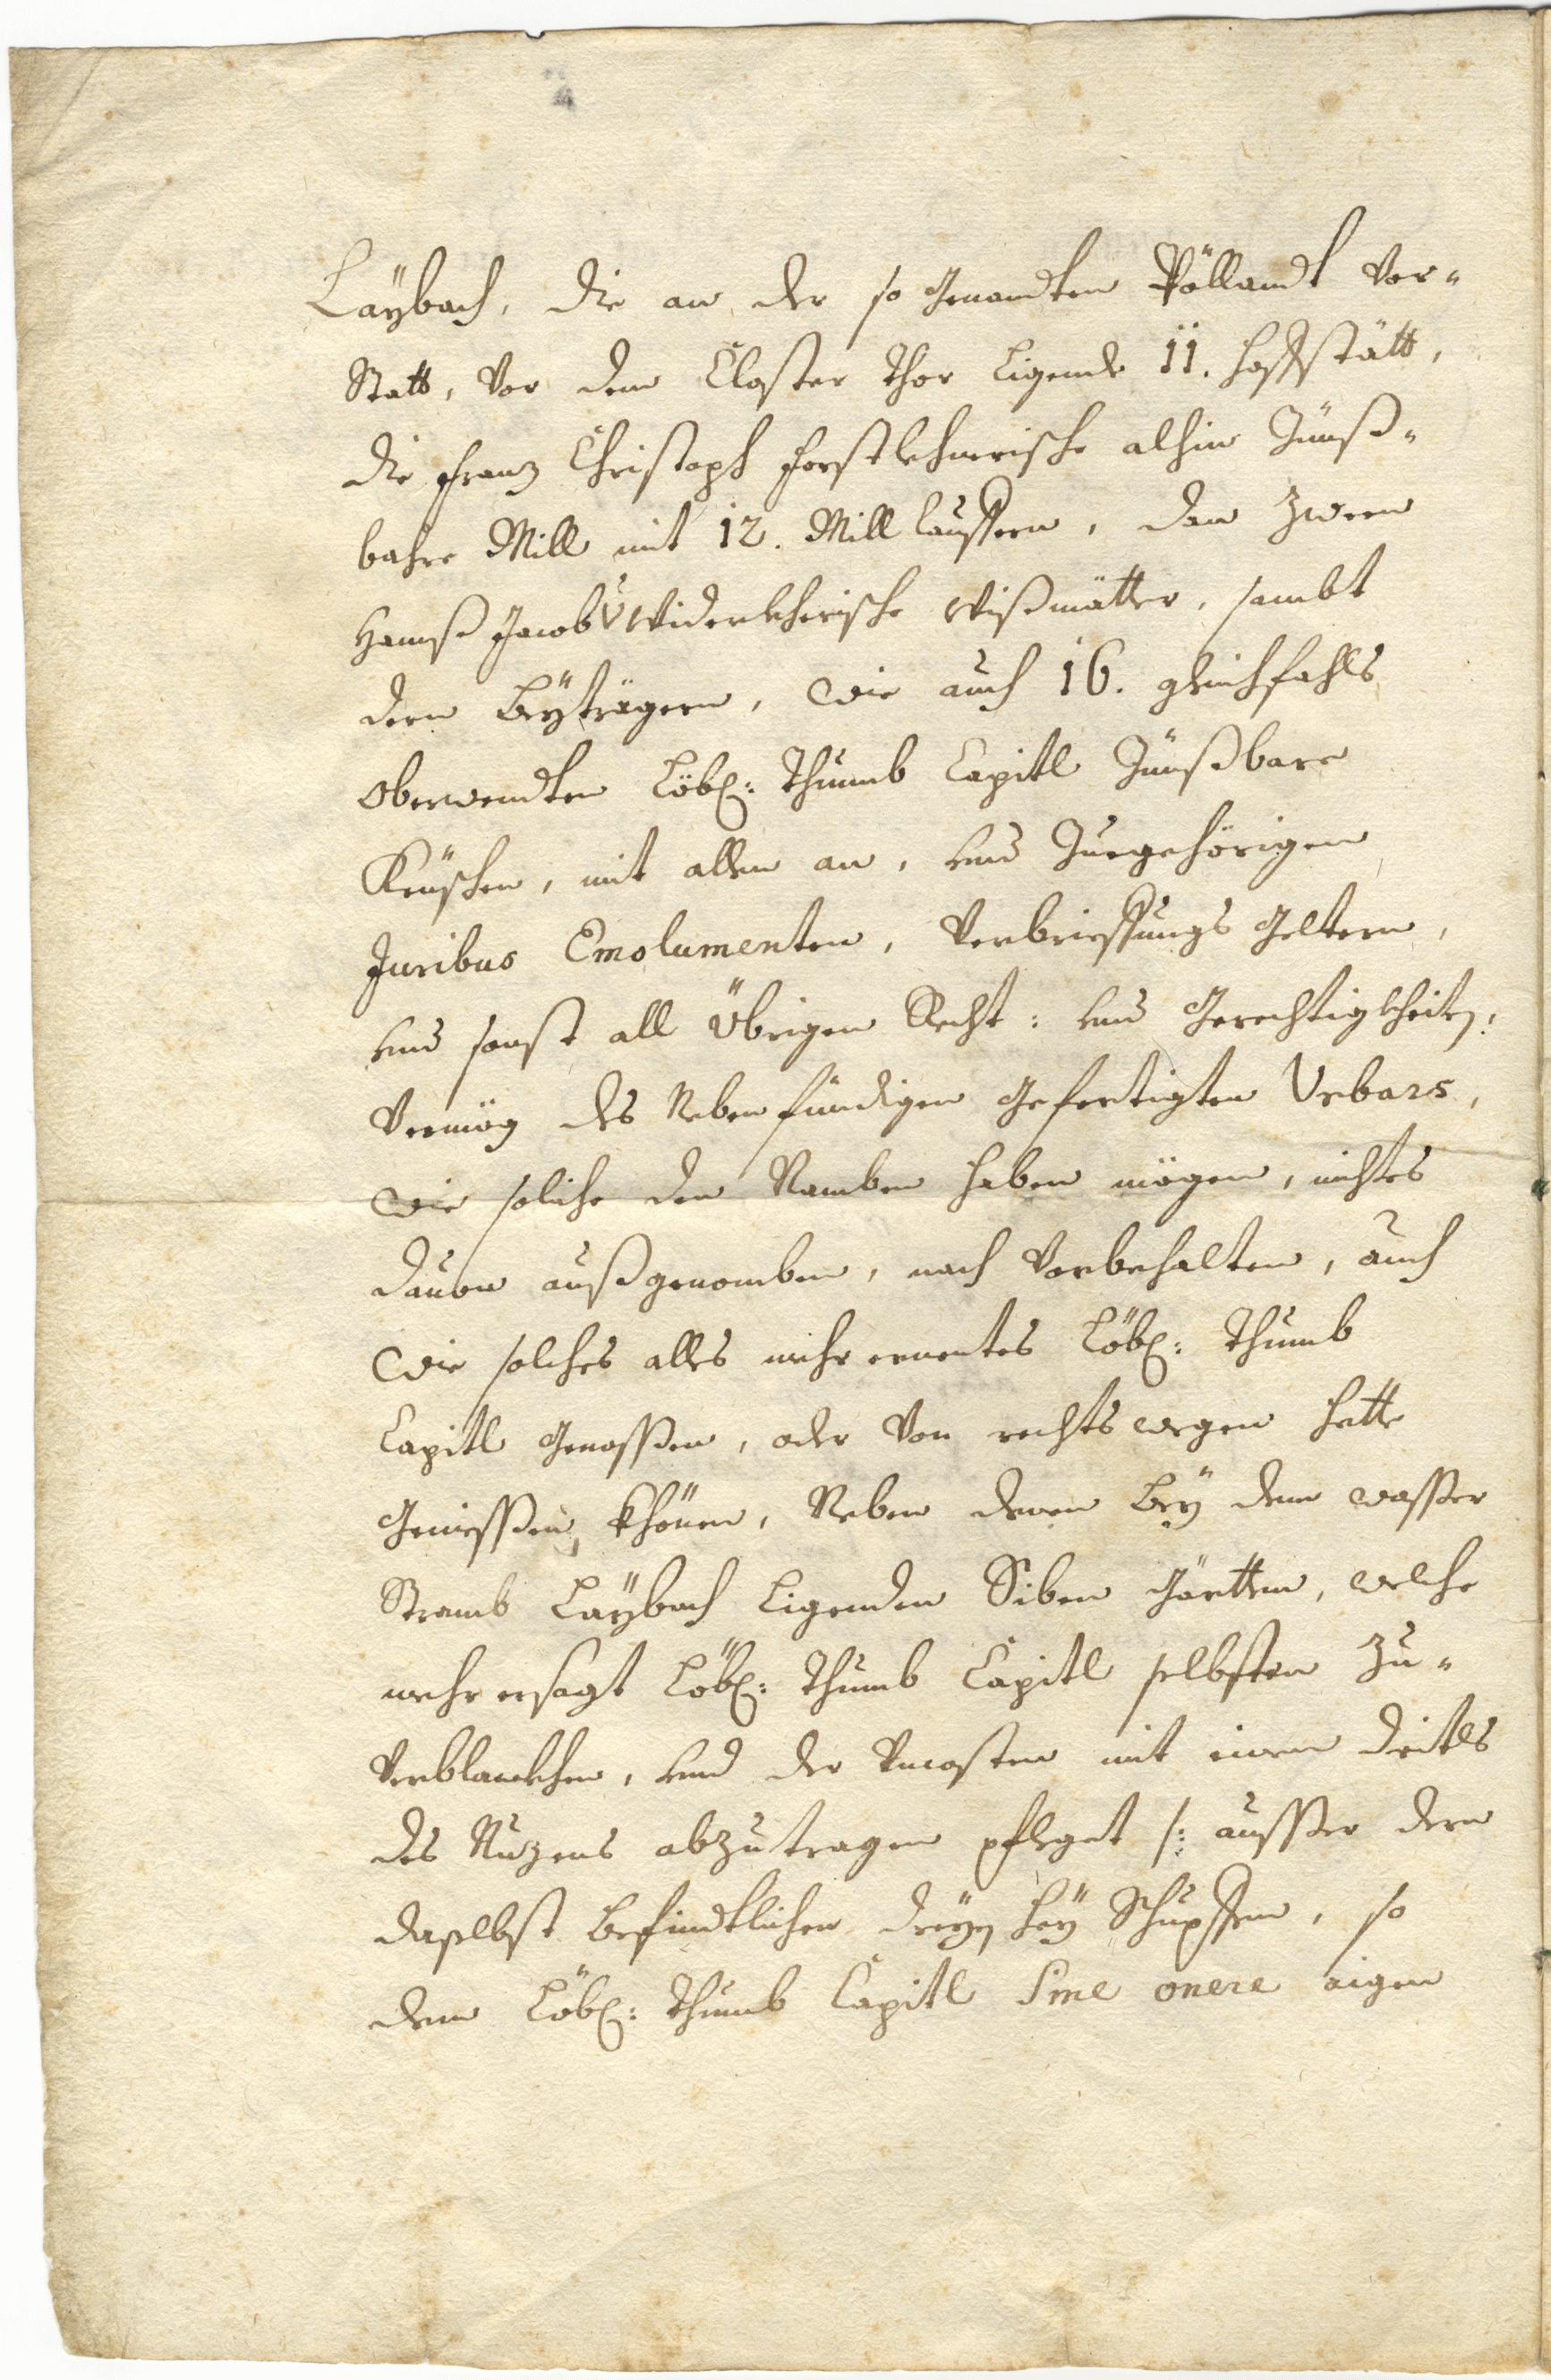 Laÿbach, die an der so Genandten Pöllandt Vor-
Statt, Vor dem Closter Thor Ligende 11. hoffstätt,
die Franz Christoph Forstlehnerische alhin Zünß-
bahre Mill mit 12. Mill lauffern, dan zween
Hannß Jacob Widerkherische Wißmätter, sambt
dern Beÿträgern, wie auch 16. gleichfahls
Oberwendten Löbl: Thumb Capitl Zünßbare
Keüschen, mit allen an, und Zuegehörigen
Juribus Emolumenten, Verbrieffungs Geltern,
und sonst all Übrigen Recht: und Gerechtigkheiten,
Vermög des Neben fündigen Gefertigten Urbars,
wie soliche den Namben haben mögen, nichtes
dauon außgenomben, noch Vorbehalten, auch
wie solches alles mehr ernentes Löbl: Thumb
Capitl Genossen, oder Von rechts wegen hette
Geniessen khönen, Neben denen Beÿ dem wasser
Stramb Laÿbach Ligenden Siben Gärtten, welche
mehr ersagt Löbl: Thumb Capitl selbsten zu-
Verblankhen, und der Uncosten mit einem dritls
des Nuzens abzutragen pfleget /: ausser dern
daselbst Befindtlichen dreÿen heÿ Schupffen, so
dem Löbl: Thumb Capitl Sine onere aigen